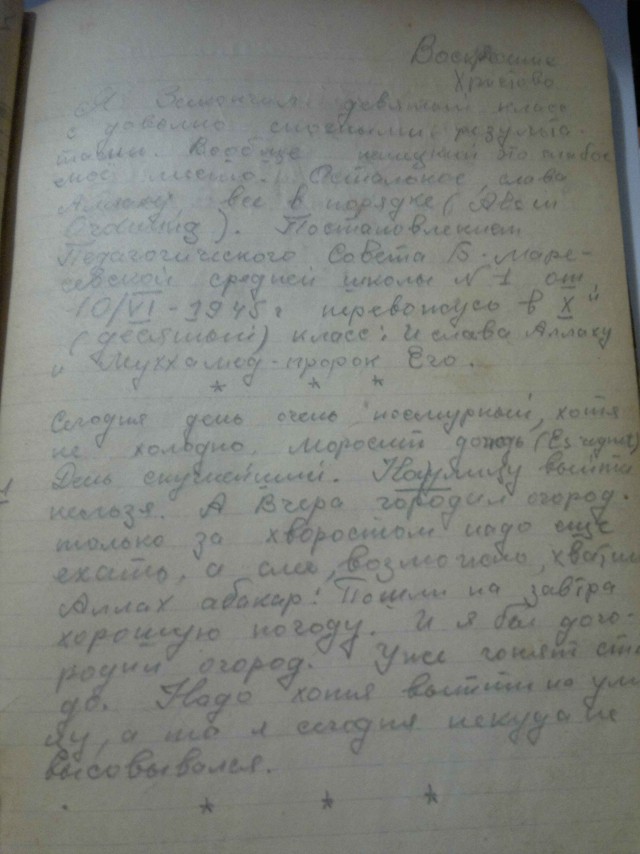 Воскресние
Христово
Я Закончил девятый класс
с довольно сносными результа-
тами. Вообще немецкий это слабое
мое место. Остальное, слава
Аллаху, все в порядке (Alles in
Ordnung). Постановлением
Педагогического Совета Б-Маре-
севской средней школы №1 от
10/VI-1945г перевожусь в X"й
(десятый) класс: И слава Аллаху
и Муххамед-пророк Его.
* * *
Сегодня день очень пасмурный, хотя
не холодно. Моросит дождь (Es regnet)
День скучнейший. На улицу выйти
нельзя. А Вчера городил огород.
только за хворостом надо еще
ехать, а слег, возможно, хватит
Аллах абакар! Пошли на завтра
хорошую погоду. И я бы дого-
родил огород. Уже гонят ста
до. Надо хотя выйтти на ули
цу, а то я сегодня некуда не
высовывался.
* * *